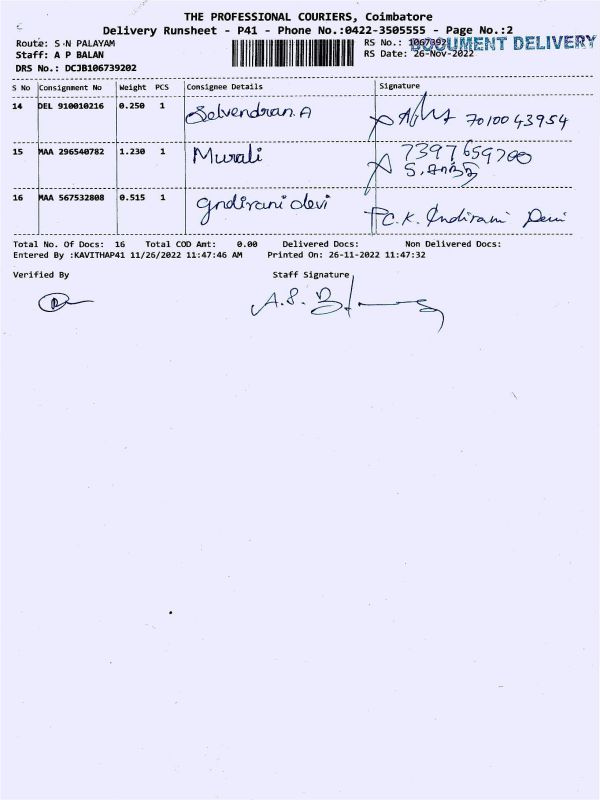 THE PROFESSIONAL COURIERS, Coimbatore
Delivery Runsheet - P41 - Phone No.:0422-3505555 - Page No.:2
Route: S N PALAYAM
Staff: A P BALAN
DRS No.: DCJB106739202
RS No.:
DOCUMENT DELIVERY
RS Date: 26-Nov-2022
S No Consignment No Weight PCS Consignee Details Signature
14 DEL 910010216 0.250 1 Selvendran.A 7010043954
15 MAA 296540782 1.230 1 Murali 7397659700
16 MAA 567532808 0.515 1 Indirani devi C.K. Indirani Devi
Total No. Of Docs: 16 Total COD Amt: 0.00 Delivered Docs: Non Delivered Docs:
Entered By :KAVITHAP41 11/26/2022 11:47:46 AM Printed On: 26-11-2022 11:47:32
Verified By Staff Signature